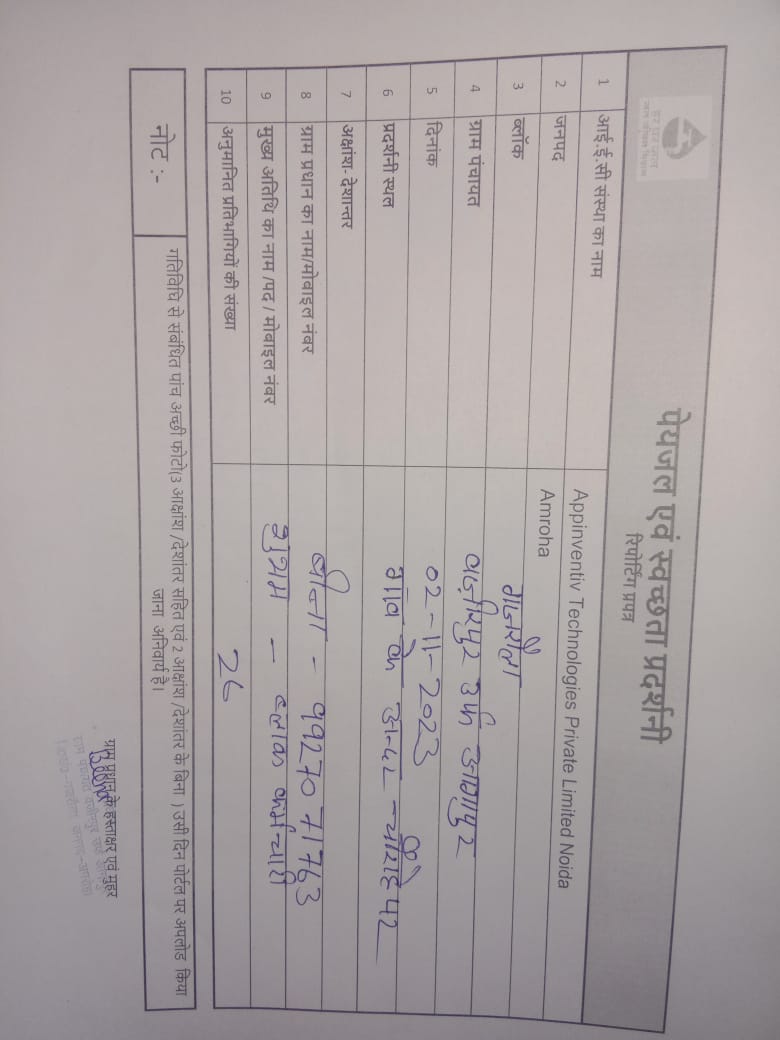 पेयजल एवं स्वच्छता प्रदर्शनी
रिपोर्टिंग प्रपत्र
1 आई.ई.सी संस्था का नाम Appinventiv Technologies Private Limited Noida
2 जनपद Amroha
3 ब्लॉक गजरौला
4 ग्राम पंचायत वाजीदपुर उर्फ
5 दिनांक 02-11-2023
6 प्रदर्शनी स्थल गाँव के अन्दर चौराहे पर
7 अक्षांश- देशान्तर
8 ग्राम प्रधान का नाम/मोबाइल नंबर - 9927071763
9 मुख्य अतिथि का नाम /पद / मोबाइल नंबर शुभम - ब्लाक कर्मचारी
10 अनुमानित प्रतिभागियों की संख्या 26
नोट :- गतिविधि से संबंधित पांच अच्छी फोटो(3 आक्षांश /देशांतर सहित एवं 2 आक्षांश /देशांतर के बिना ) उसी दिन पोर्टल पर अपलोड किया
जाना अनिवार्य है।
ग्राम प्रधान के हस्ताक्षर एवं मुहर